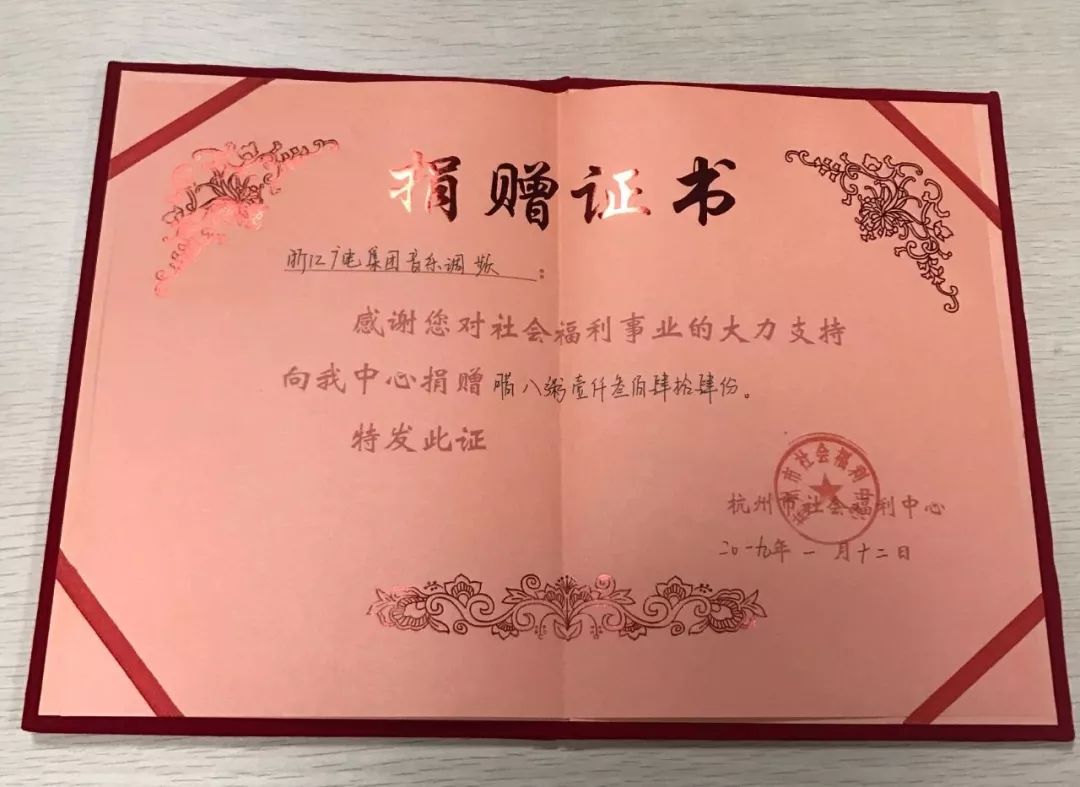 捐赠证书
浙江广电集团音乐调频：
感谢您对社会福利事业的大力支持
向我中心捐赠腊八粥壹仟叁佰肆拾肆份。
特发此证
杭州市社会福利中心
杭州市社会福利中心
二〇一九年一月十二日